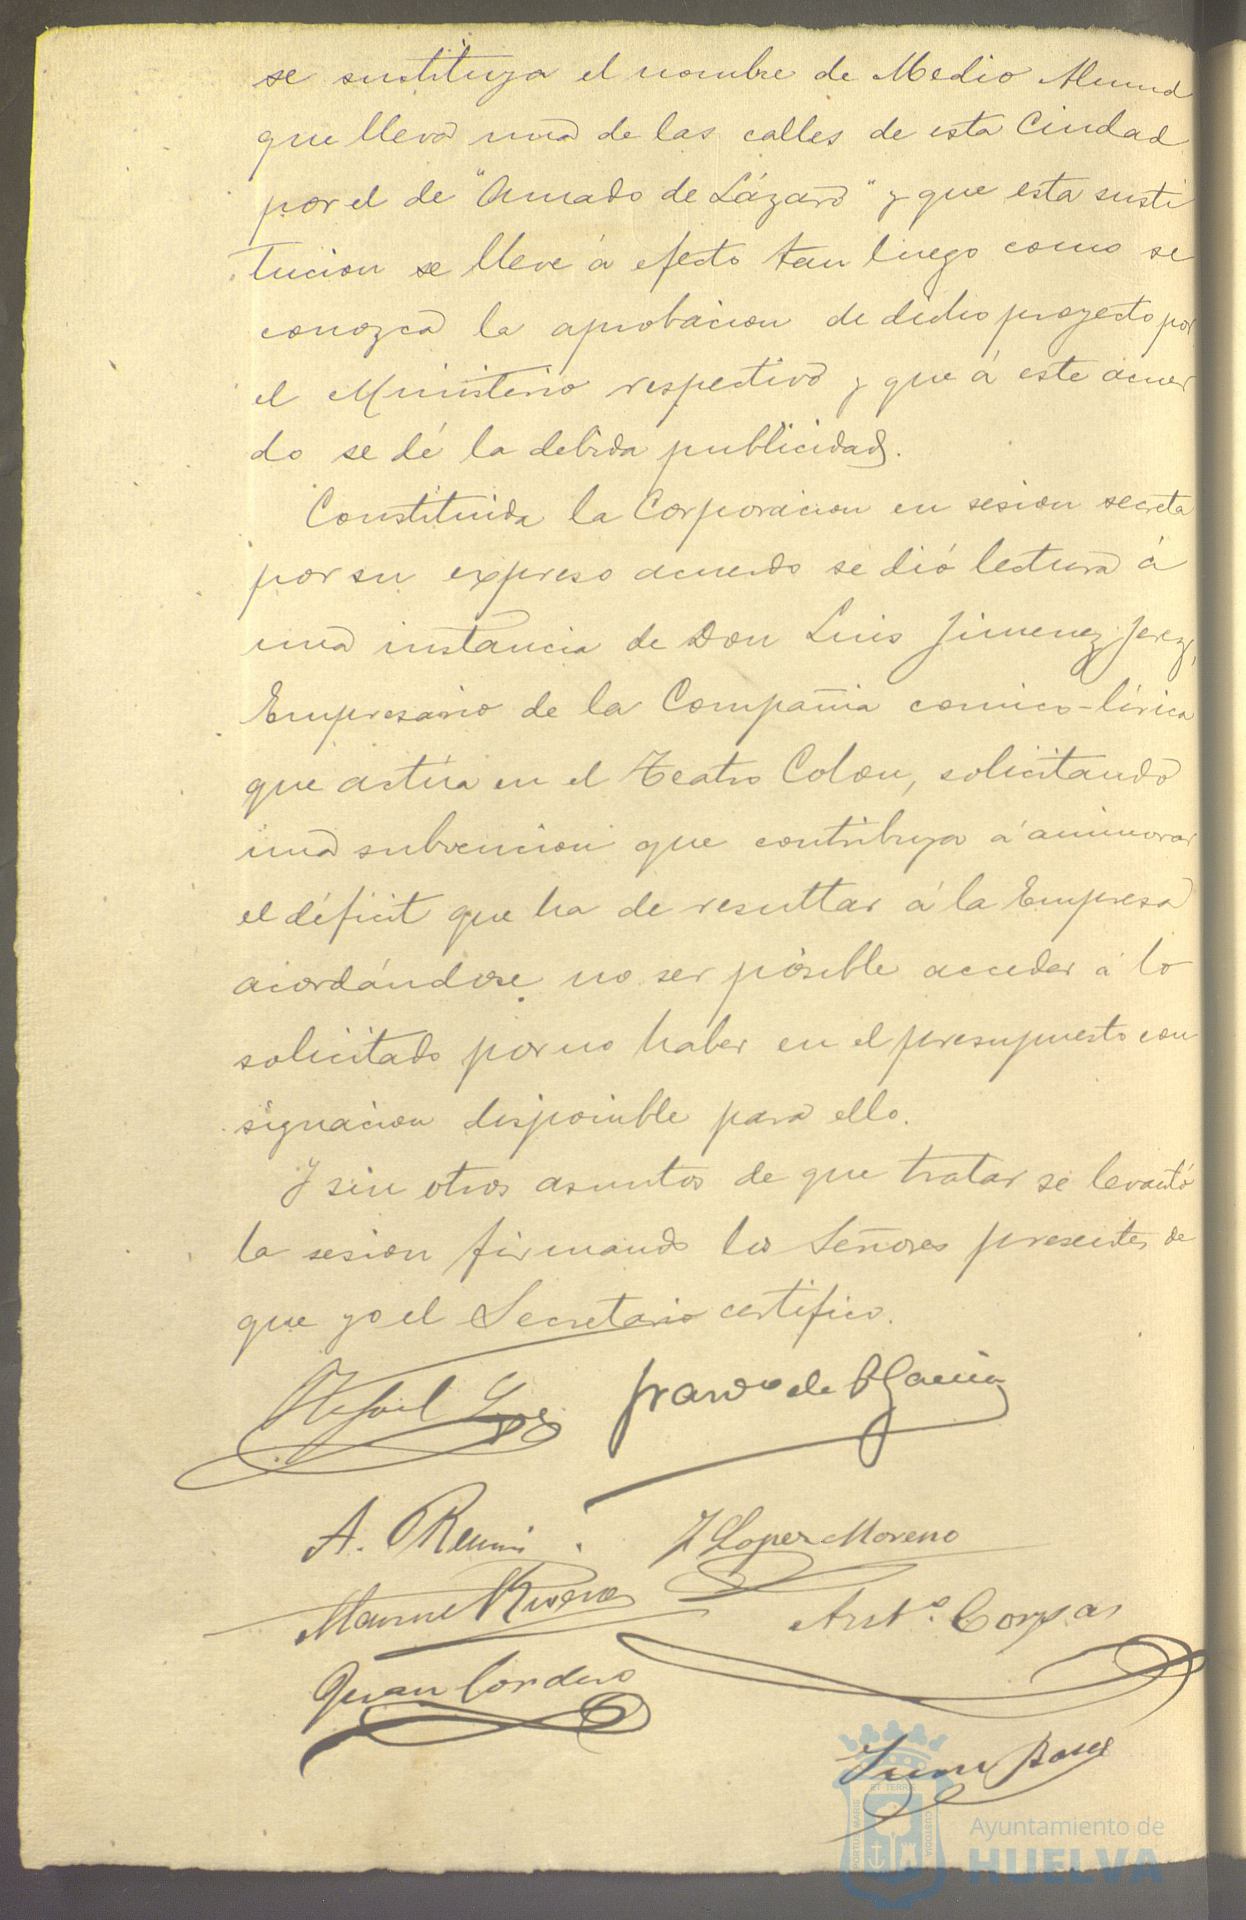 se sustituya el nombre de Medio Almud
que lleva una de las calles de esta Ciudad
por el de "Amado de Lázaro" y que esta susti
tucion se lleve á efecto tan luego como se
conozca la aprobacion de dicho proyecto por
el Ministerio respectivo y que á este acuer
do se dé la debida publicidad.
Constituida la Corporacion en sesion secreta
por su expreso acuerdo se dió lectura á
una instancia de Don Luis Jimenez Jerez,
Empresario de la Compañia comico-lírica
que actúa en el Teatro Colon, solicitando
una subvencion que contribuya á aminorar
el déficit que ha de resultar á la Empresa
acordándose no ser posible acceder á lo
solicitado por no haber en el presupuesto con
signacion disponible para ello.
Y sin otros asuntos de que tratar se levantó
la sesion firmando los Señores presentes de
que yo el Secretario certifico.
Franco de P García
A.
J Lopez Moreno
Manuel Rivera
Antº. Corpas
Juan Cordero
PORTUS MARIS ET TERRE CUSTODIA
Ayuntamiento de
HUELVA